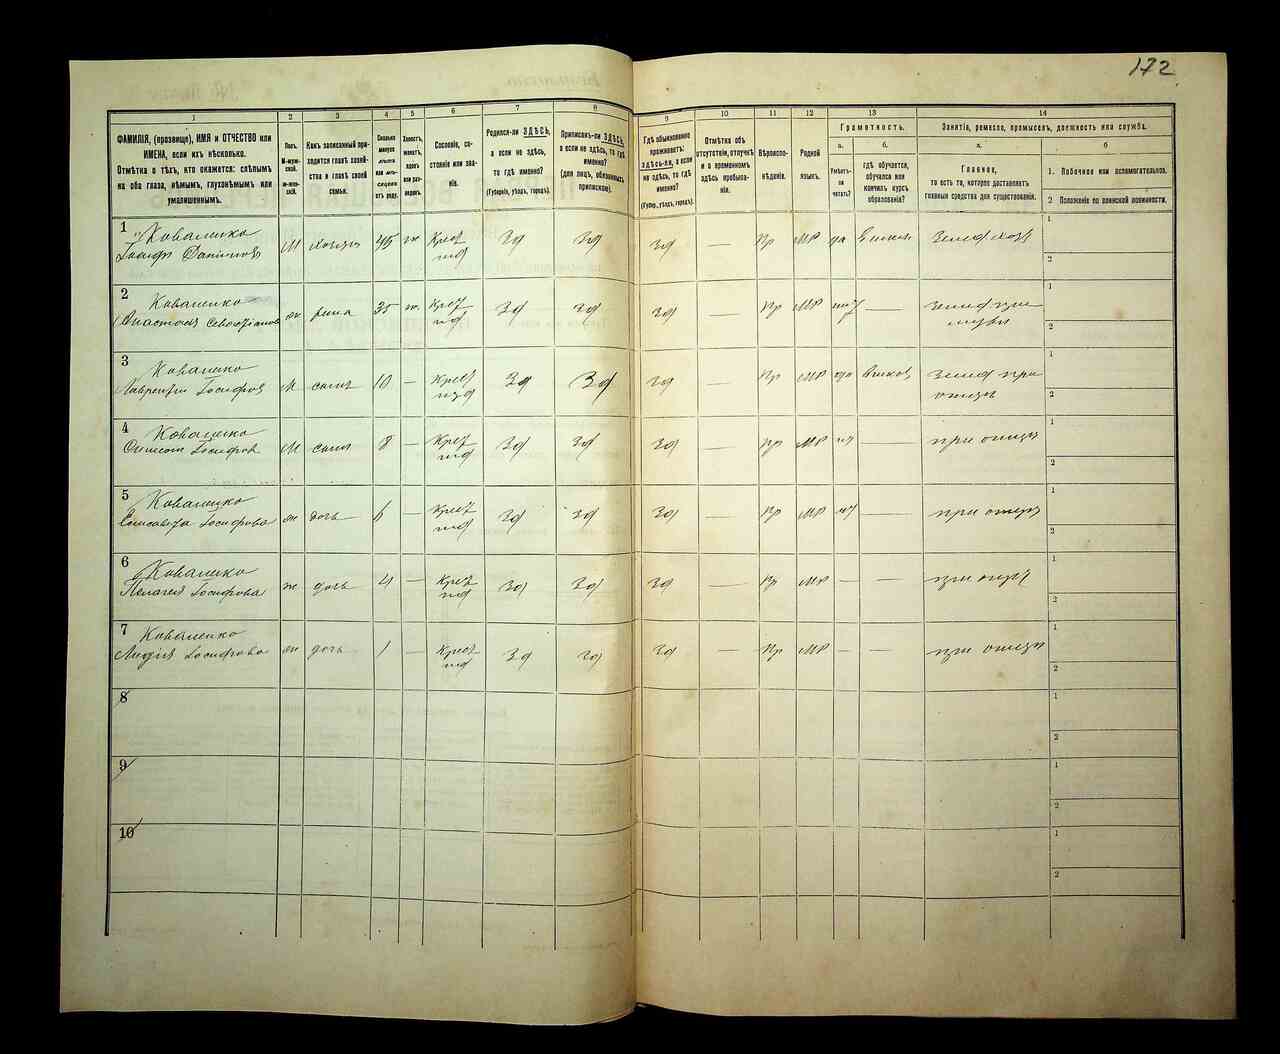 172
1
2
3
4
5
6
7
8
9
10
11
12
13
14
ФАМИЛІЯ, (прозвище), ИМЯ и ОТЧЕСТВО или
ИМЕНА, если ихъ нѣсколько.
Отмѣтка о тѣхъ, кто окажется: слѣпымъ
на оба глаза, нѣмымъ, глухонѣмымъ или
умалишеннымъ.
Полъ.
М-муж-
ской.
Ж-жен-
скій.
Какъ записанный при-
ходится главѣ хозяй-
ства и главѣ своей
семьи.
Сколько
минуло
лѣтъ
или мѣ-
сяцевъ
отъ роду.
Холостъ,
женатъ,
вдовъ
или раз-
веденъ.
Сословіе, со-
стояніе или зва-
ніе.
Родился-ли ЗДѢСЬ,
а если не здѣсь,
то гдѣ именно?
(Губернія, уѣздъ, городъ).
Приписанъ-ли ЗДѢСЬ,
а если не здѣсь, то гдѣ
именно?
(для лицъ, обязанныхъ
припискою).
Гдѣ обыкновенно
проживаетъ:
ЗДѢСЬ-ли, а если
не здѣсь, то гдѣ
именно?
(Губер., уѣздъ, городъ).
Отмѣтка объ
отсутствіи, отлучкѣ
и о временномъ
здѣсь пребыва-
ніи.
Вѣроиспо-
вѣданіе.
Родной
языкъ.
Грамотность.
а.
б.
Умѣетъ-
ли
читать?
гдѣ обучается,
обучался или
кончилъ курсъ
образованія?
Занятіе, ремесло, промыселъ, должность или служба.
а.
б
Главное,
то есть то, которое доставляетъ
главныя средства для существованія.
1. Побочное или вспомогательное.
2 Положеніе по воинской повинности.
1
Коваленко
Іосифъ
М
45
ж
Крест
Зд
Зд
Зд
—
Пр
МР
да
1
2
2
Коваленко
Анастасія
ж
жена
35
Крест
Зд
Зд
Зд
—
Пр
МР
нѣт
—
1
2
3
Коваленко
Лаврентій Іосифов
М
сынъ
10
—
Крест
Зд
Зд
Зд
—
Пр
МР
да
Землед при
отцѣ
1
2
4
Коваленко
Іосифов
М
сынъ
8
—
Крест
Зд
Зд
Зд
—
Пр
МР
—
при отцѣ
1
2
5
Коваленко
Елисавета Іосифова
ж
дочь
6
—
Крест
Зд
Зд
Зд
—
Пр
МР
—
при отцѣ
1
2
6
Коваленко
Пелагея Іосифова
ж
дочь
4
—
Крест
Зд
Зд
Зд
—
Пр
МР
—
—
при отцѣ
1
2
7
Коваленко
Лидія Іосифова
ж
дочь
1
—
Крест
Зд
Зд
Зд
—
Пр
МР
—
—
при отцѣ
1
2
8
1
2
9
1
2
10
1
2